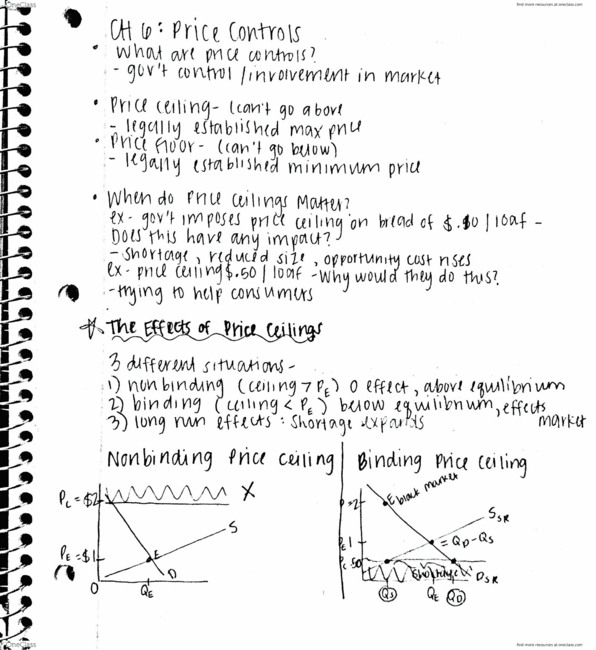 OneClass
find more resources at oneclass.com
CH 6: Price Controls
• What are price controls?
- gov't control /involvement in market
• Price ceiling- (can't go above
- legally established max price
• Price floor- (can't go below)
- legally established minimum price
• When do Price ceilings Matter?
ex- gov't imposes price ceiling on bread of $.50/loaf -
Does this have any impact?
- shortage, reduced size, opportunity cost rises
ex- price ceiling $.50/loaf -Why would they do this?
-trying to help consumers
The Effects of Price Ceilings
3 different situations-
1) nonbinding (ceiling > PE) 0 effect, above equilibrium
2) binding (ceiling < PE) below equilibrium, effects market
3) long run effects: Shortage expands
Nonbinding Price ceiling
PC = $2
X
S
PE = $1
E
D
0
QE
Binding Price ceiling
P=2
E black market
SSR
PE 1
= QD-QS
PC .50
Shortage
DSR
QS
QE
QD
OneClass
find more resources at oneclass.com